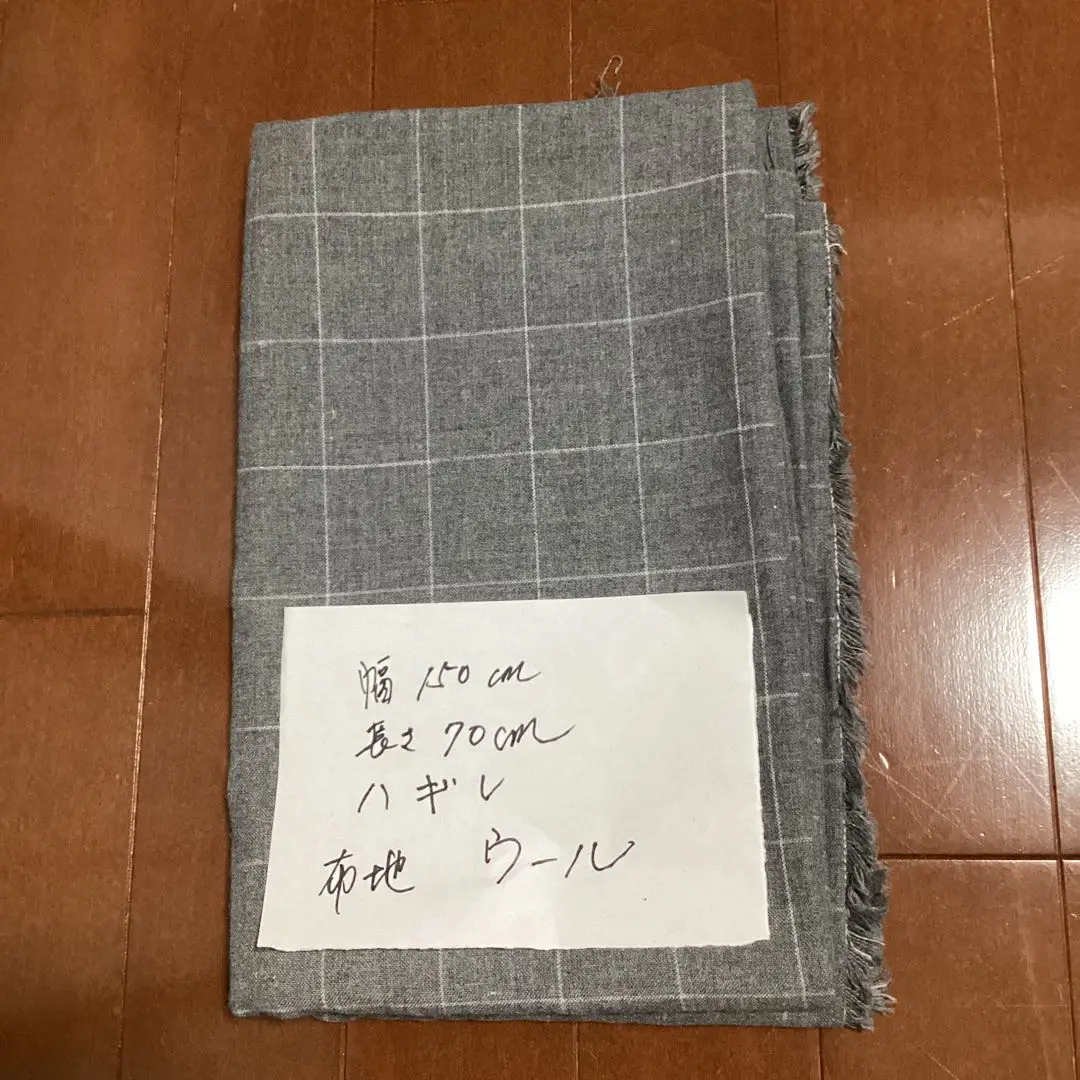 幅 150cm
長さ 70cm
ハギレ
布地 ウール